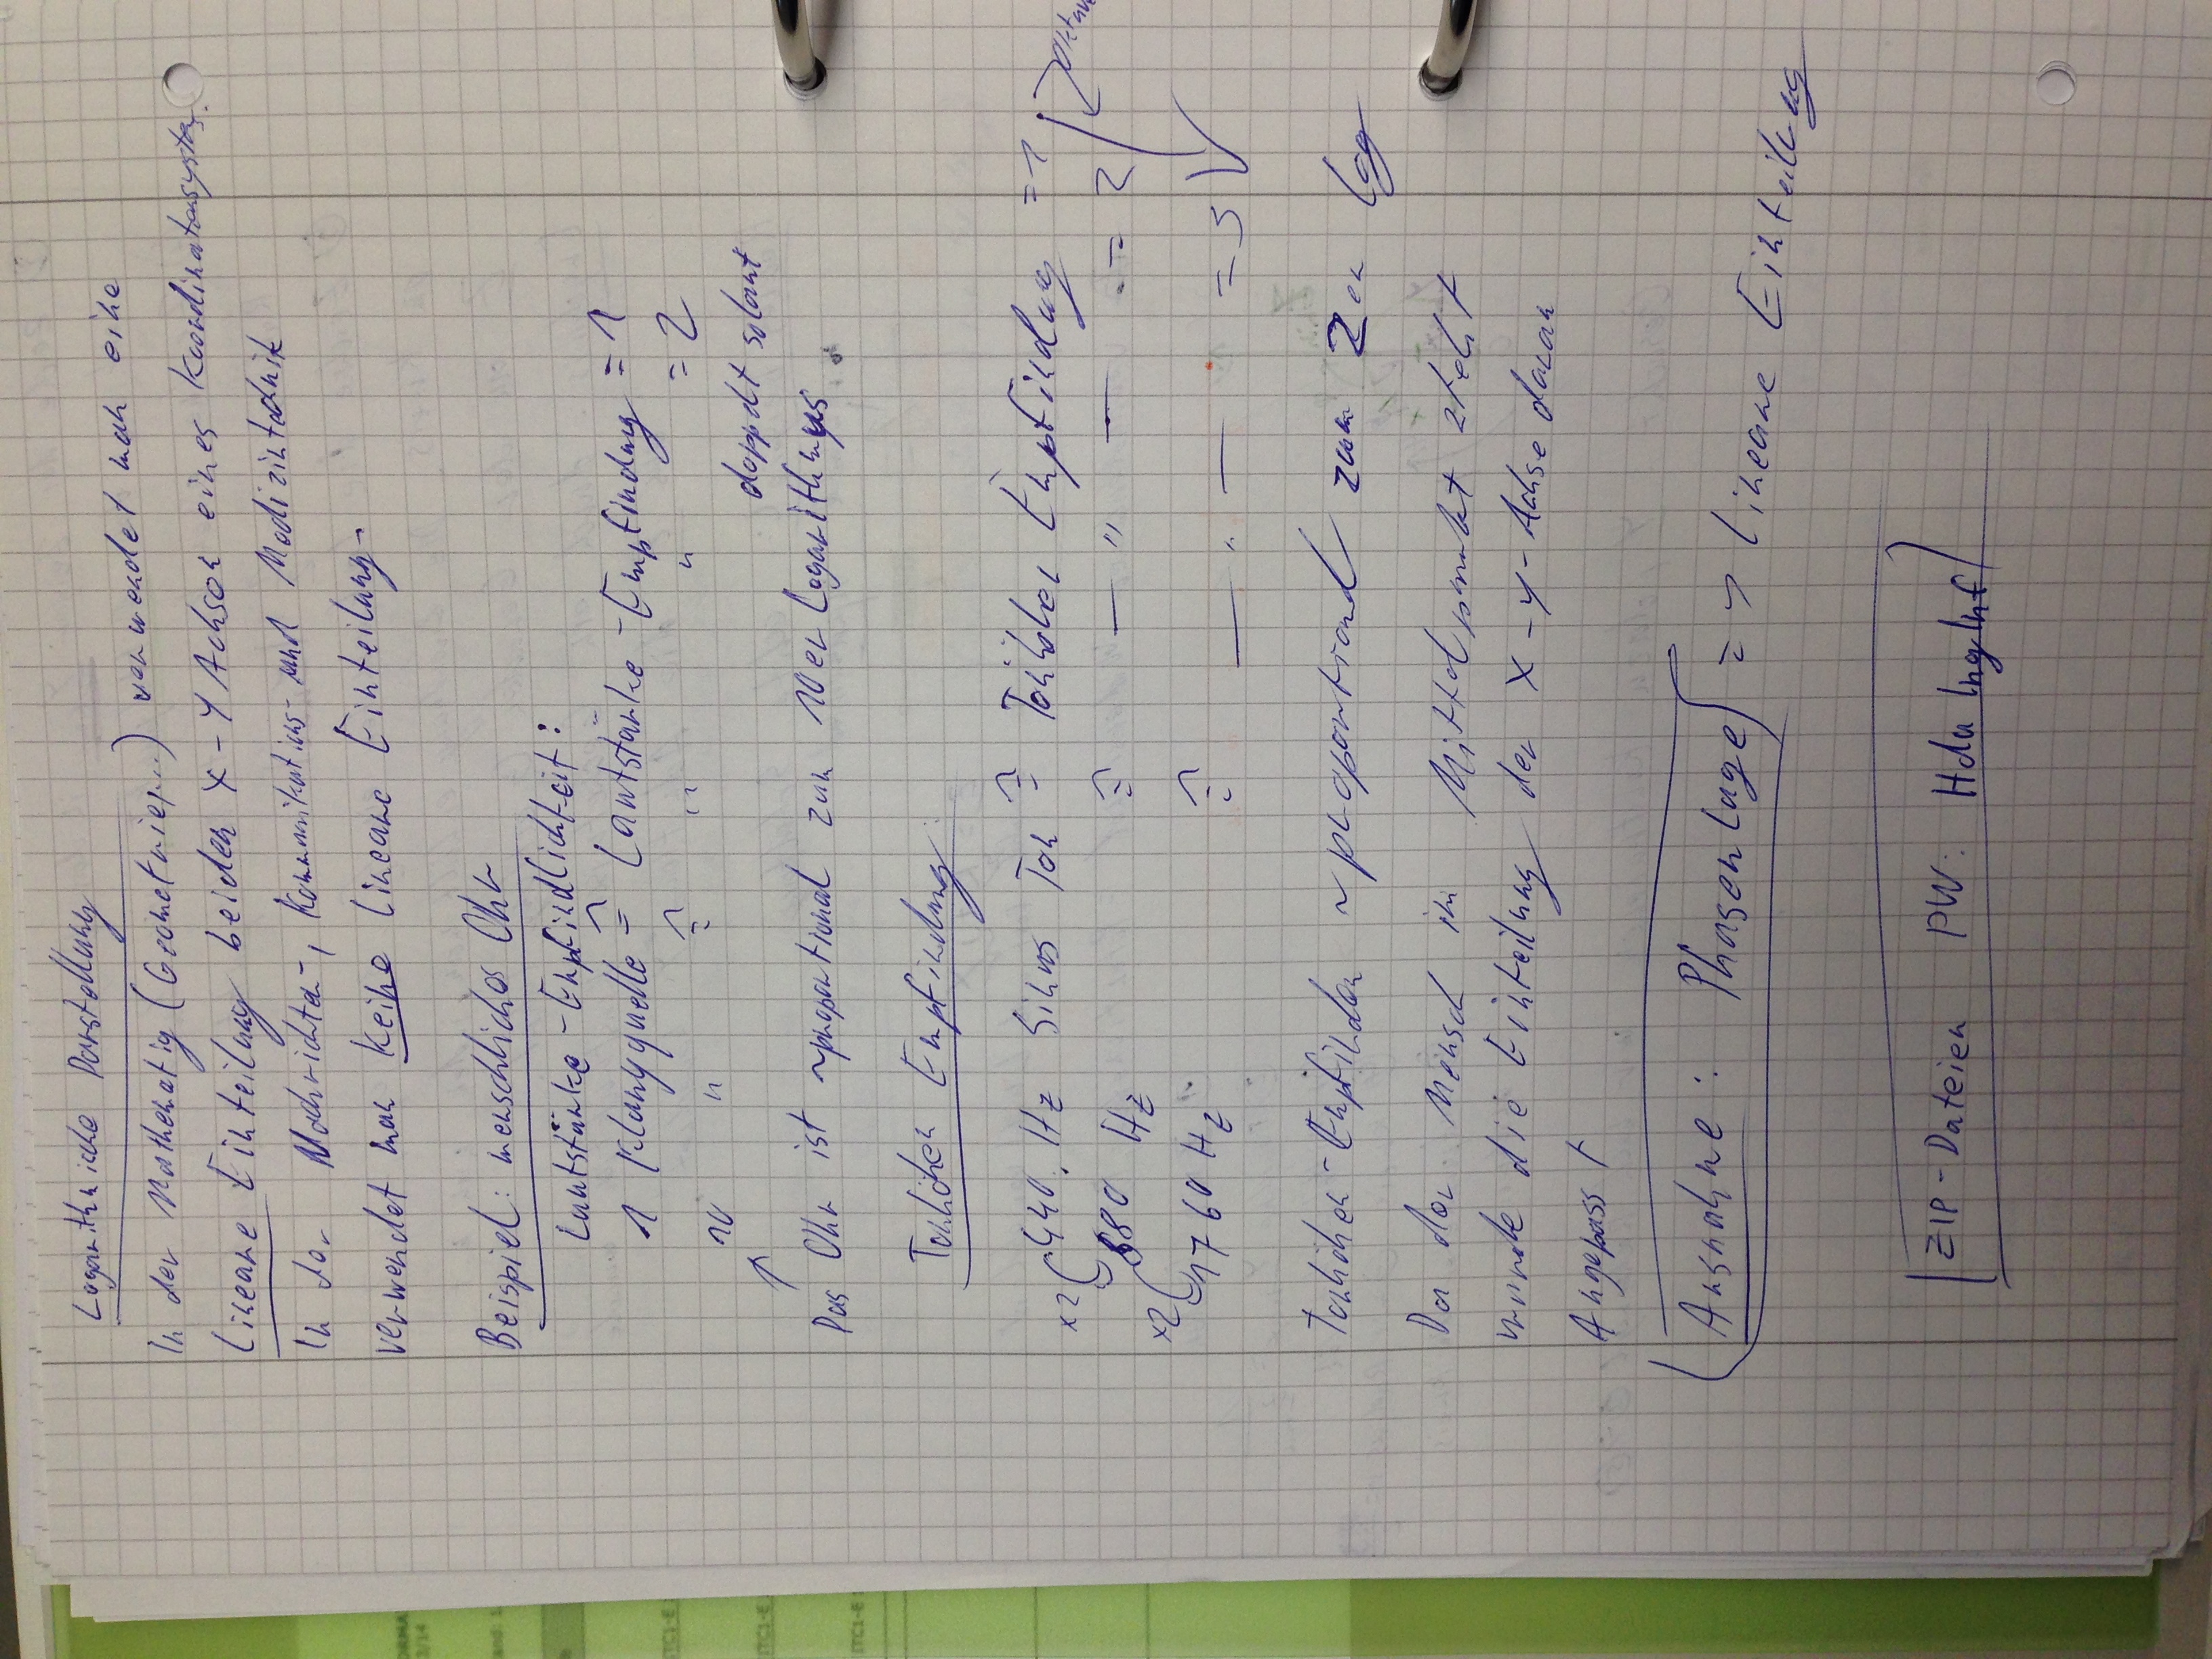 Logarithmische Darstellung
In der Mathematig (Geometrie,...) verwendet man eine
Lineare Einteilung beiden X-Y Achsen eines Koordinatensystems.
In der Nachrichten-, Kommunikations- und Medizintechnik
verwendet man keine lineare Einteilung.
Beispiel: menschliches Ohr
Lautstärke-Empfindlichkeit:
1 Klangquelle ≙ Lautstärke-Empfindung = 1
10 " ≙ " " = 2
doppelt so laut
↑
Das Ohr ist ~proportional zum 10er Logarithmus.
Tonhöhen Empfindung
x2 440 Hz Sinus Ton ≙ Tonhöhen Empfindung = 1 Oktave
x2 880 Hz ≙ — " — = 2
1760 Hz ≙ — " — = 3
Tonhöhen-Empfinden ~proportional zum 2er Log
Da der Mensch im Mittelpunkt steht
wurde die Einteilung der X-Y-Achse daran
Angepasst
Ausnahme: Phasenlage => lineare Einteilung
ZIP-Dateien PW: Hda IngInf
ORMA
3/14
tand: 1.
ITC1-E
ITC1-E
ITC1-E